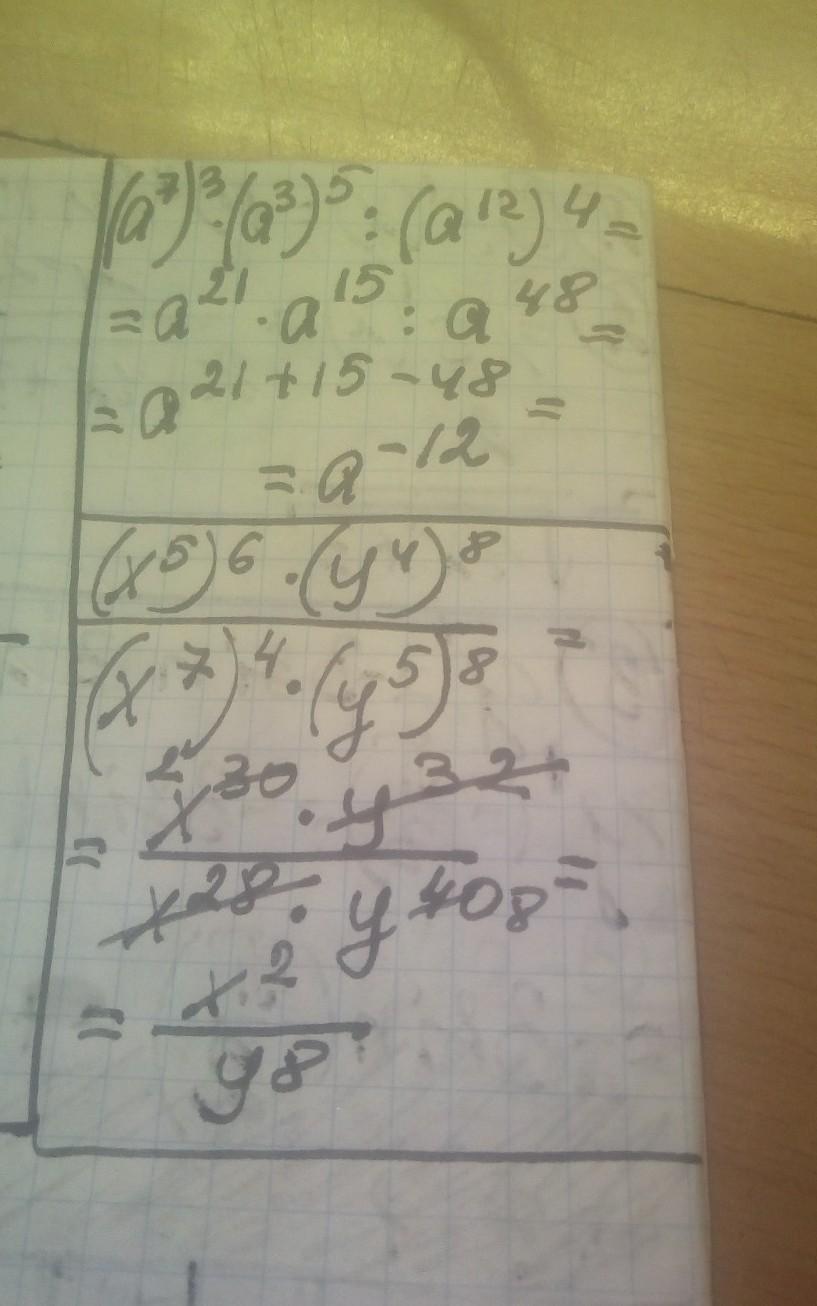 (a⁷)³·(a³)⁵ : (a¹²)⁴ =
= a²¹ · a¹⁵ : a⁴⁸ =
= a²¹⁺¹⁵⁻⁴⁸ =
= a⁻¹²
(x⁵)⁶ · (y⁴)⁸
(x⁷)⁴ · (y⁵)⁸ =
2
x³⁰ · y³²
= x²⁸ · y⁴⁰ 8 =
= x²
y⁸